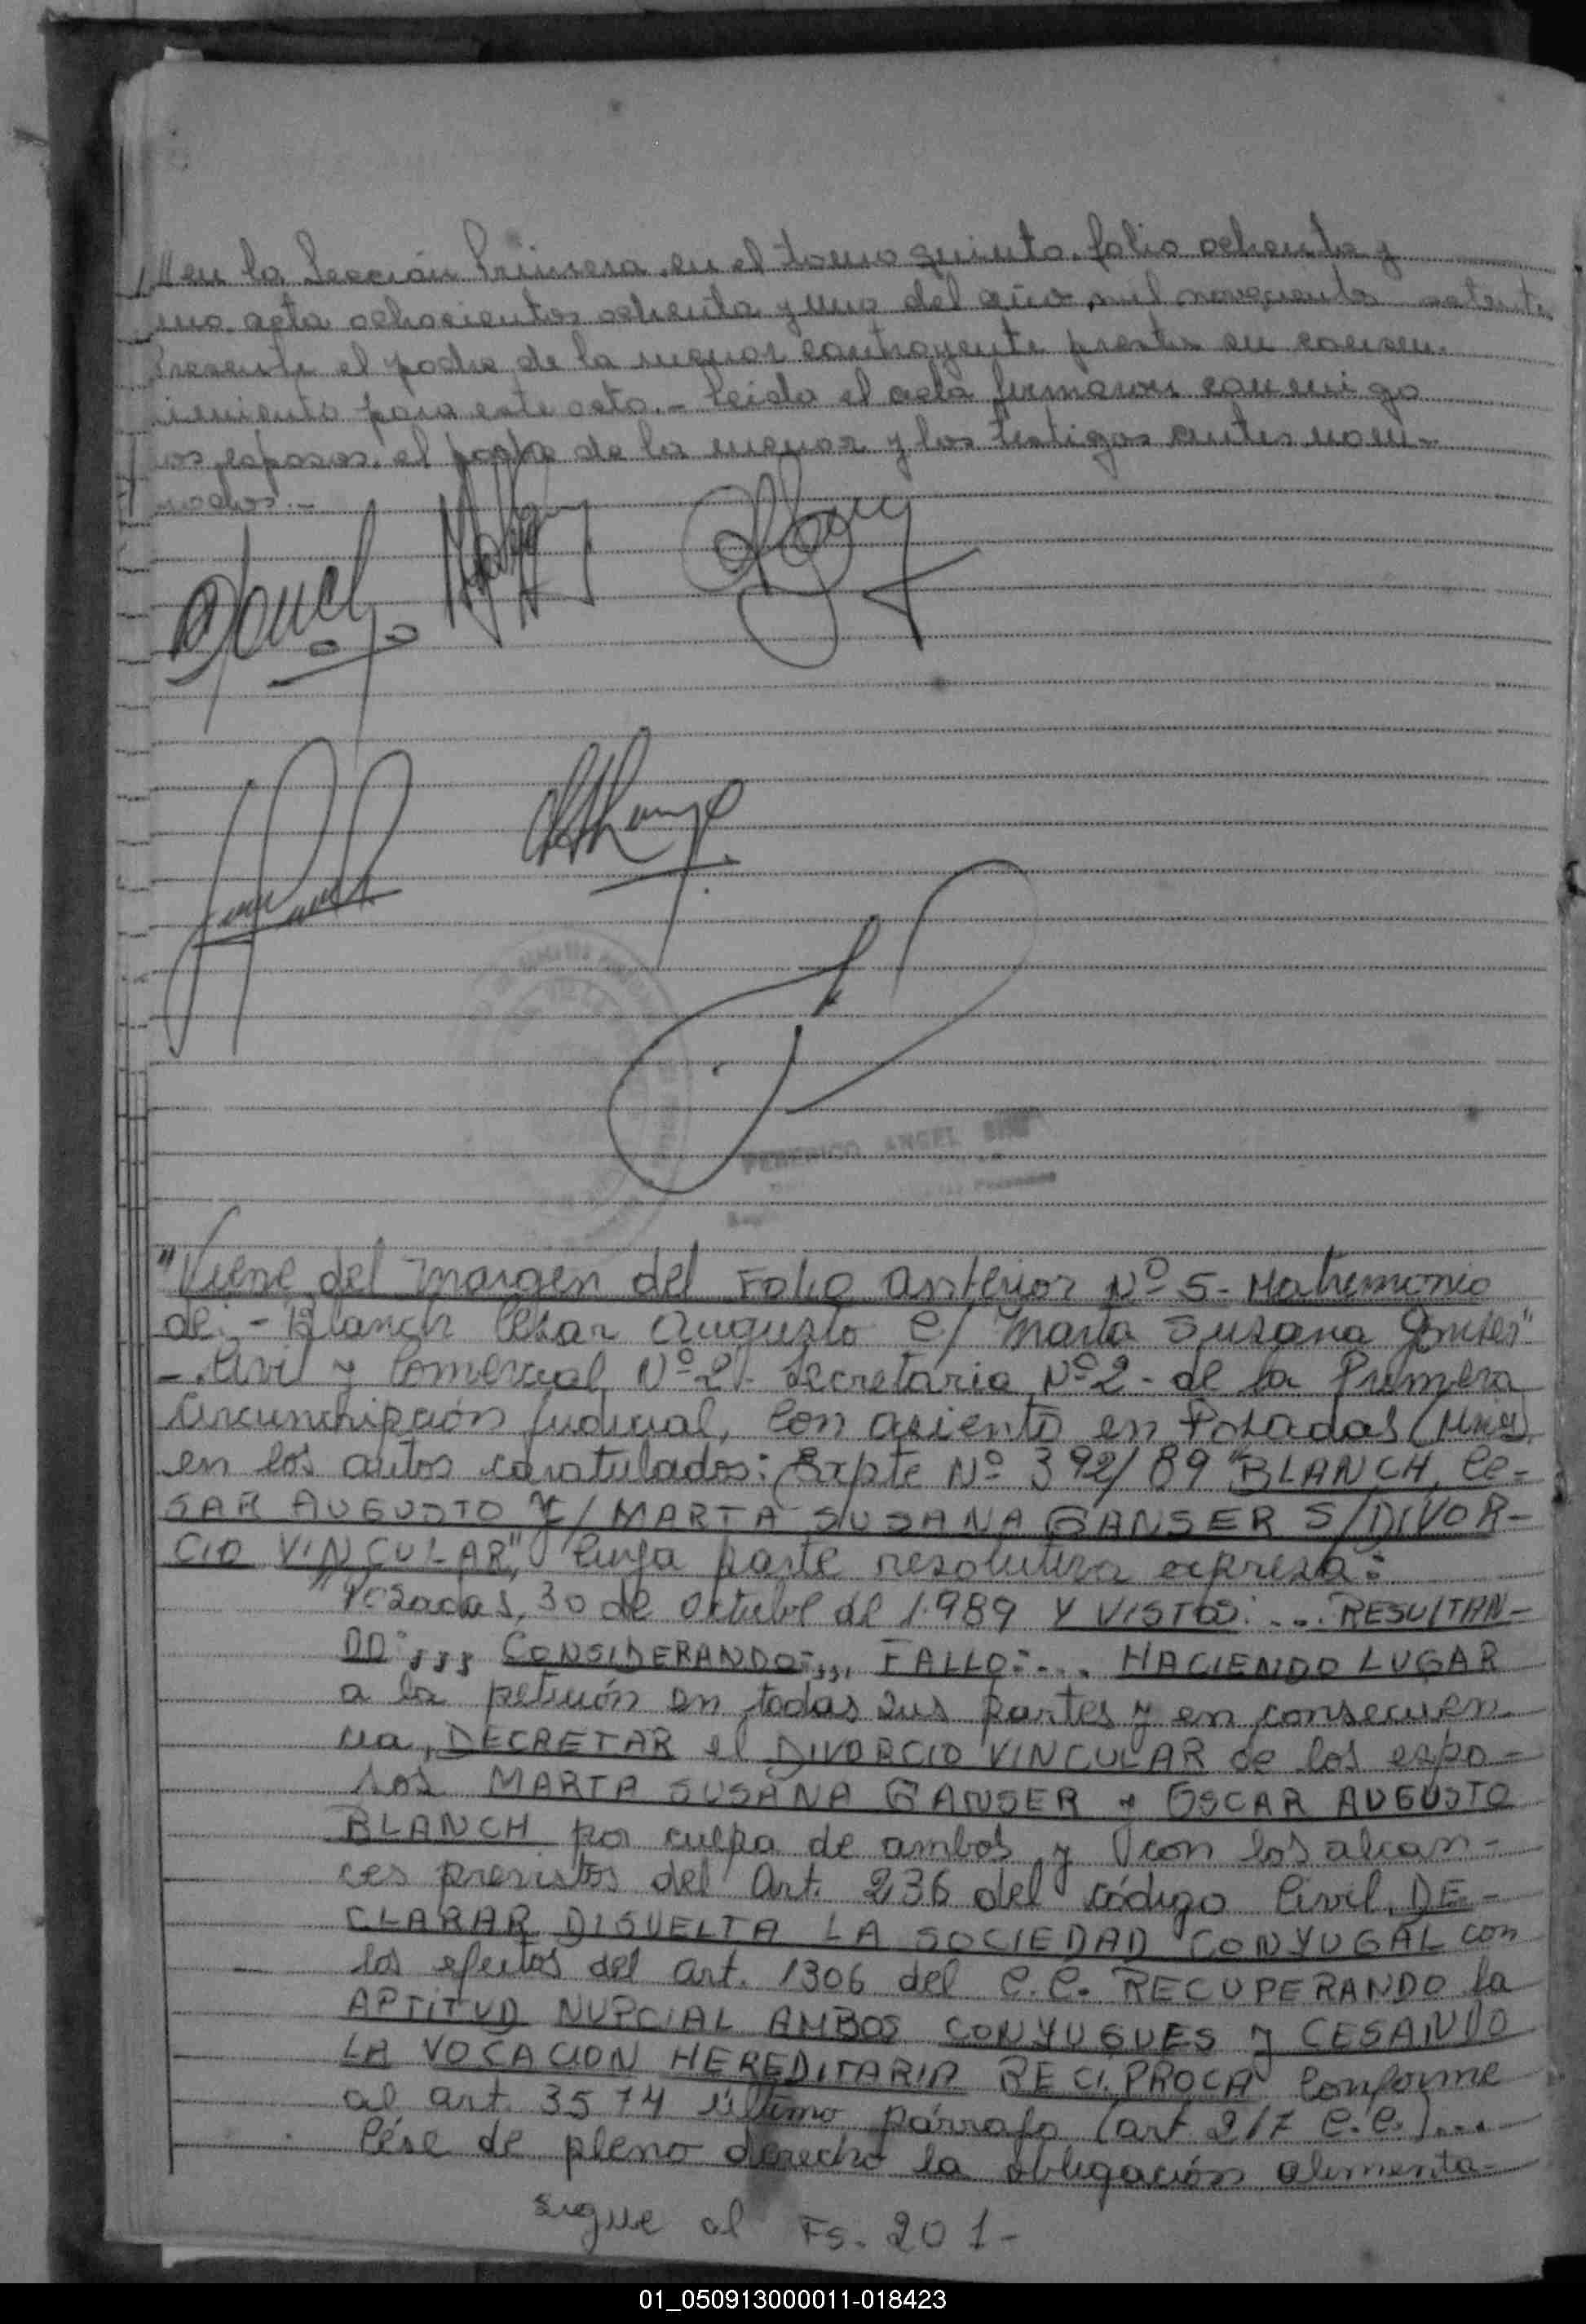 en la Sección Primera, en el tomo quinto, folio ochenta y
uno, acta ochocientos ochenta y uno del año mil novecientos setenta
Presente el padre de la menor contrayente presta su consen-
timiento para este acto.- Leida el acta firmaron conmigo
los esposos, el padre de la menor y los testigos antes nom-
FEDERICO ANGEL
"Viene del margen del Folio anterior Nº 5- Matrimonio
de:- Blanch Cesar Augusto c/ Marta Susana
-. Civil y Comercial Nº 2- Secretaria Nº 2- de la Primera
Circunscripción Judicial, con asiento en Posadas (Mnes)
en los autos caratulados: Expte Nº 392/89 "BLANCH, CE-
SAR AUGUSTO c/ MARTA SUSANA GANSER S/DIVOR-
CIO VINCULAR", cuya parte resolutiva expresa:
"Posadas, 30 de Octubre de 1.989 Y VISTOS: ... RESULTAN-
DO:,,, CONSIDERANDO:,,, FALLO:... HACIENDO LUGAR
a la petición en todas sus partes y en consecuen
cia, DECRETAR el DIVORCIO VINCULAR de los espo-
sos MARTA SUSANA GANSER y OSCAR AUGUSTO
BLANCH por culpa de ambos y con los alcan-
ces previstos del Art. 236 del código Civil, DE-
CLARAR DISUELTA LA SOCIEDAD CONYUGAL con
los efectos del art. 1306 del C.C. RECUPERANDO la
APTITUD NUPCIAL AMBOS CONYUGUES y CESANDO
LA VOCACION HEREDITARIA RECIPROCA conforme
al art. 3574 último párrafo (art 217 C.C.)...
Cése de pleno derecho la obligación alimenta-
sigue al Fs. 201-
01_050913000011-018423